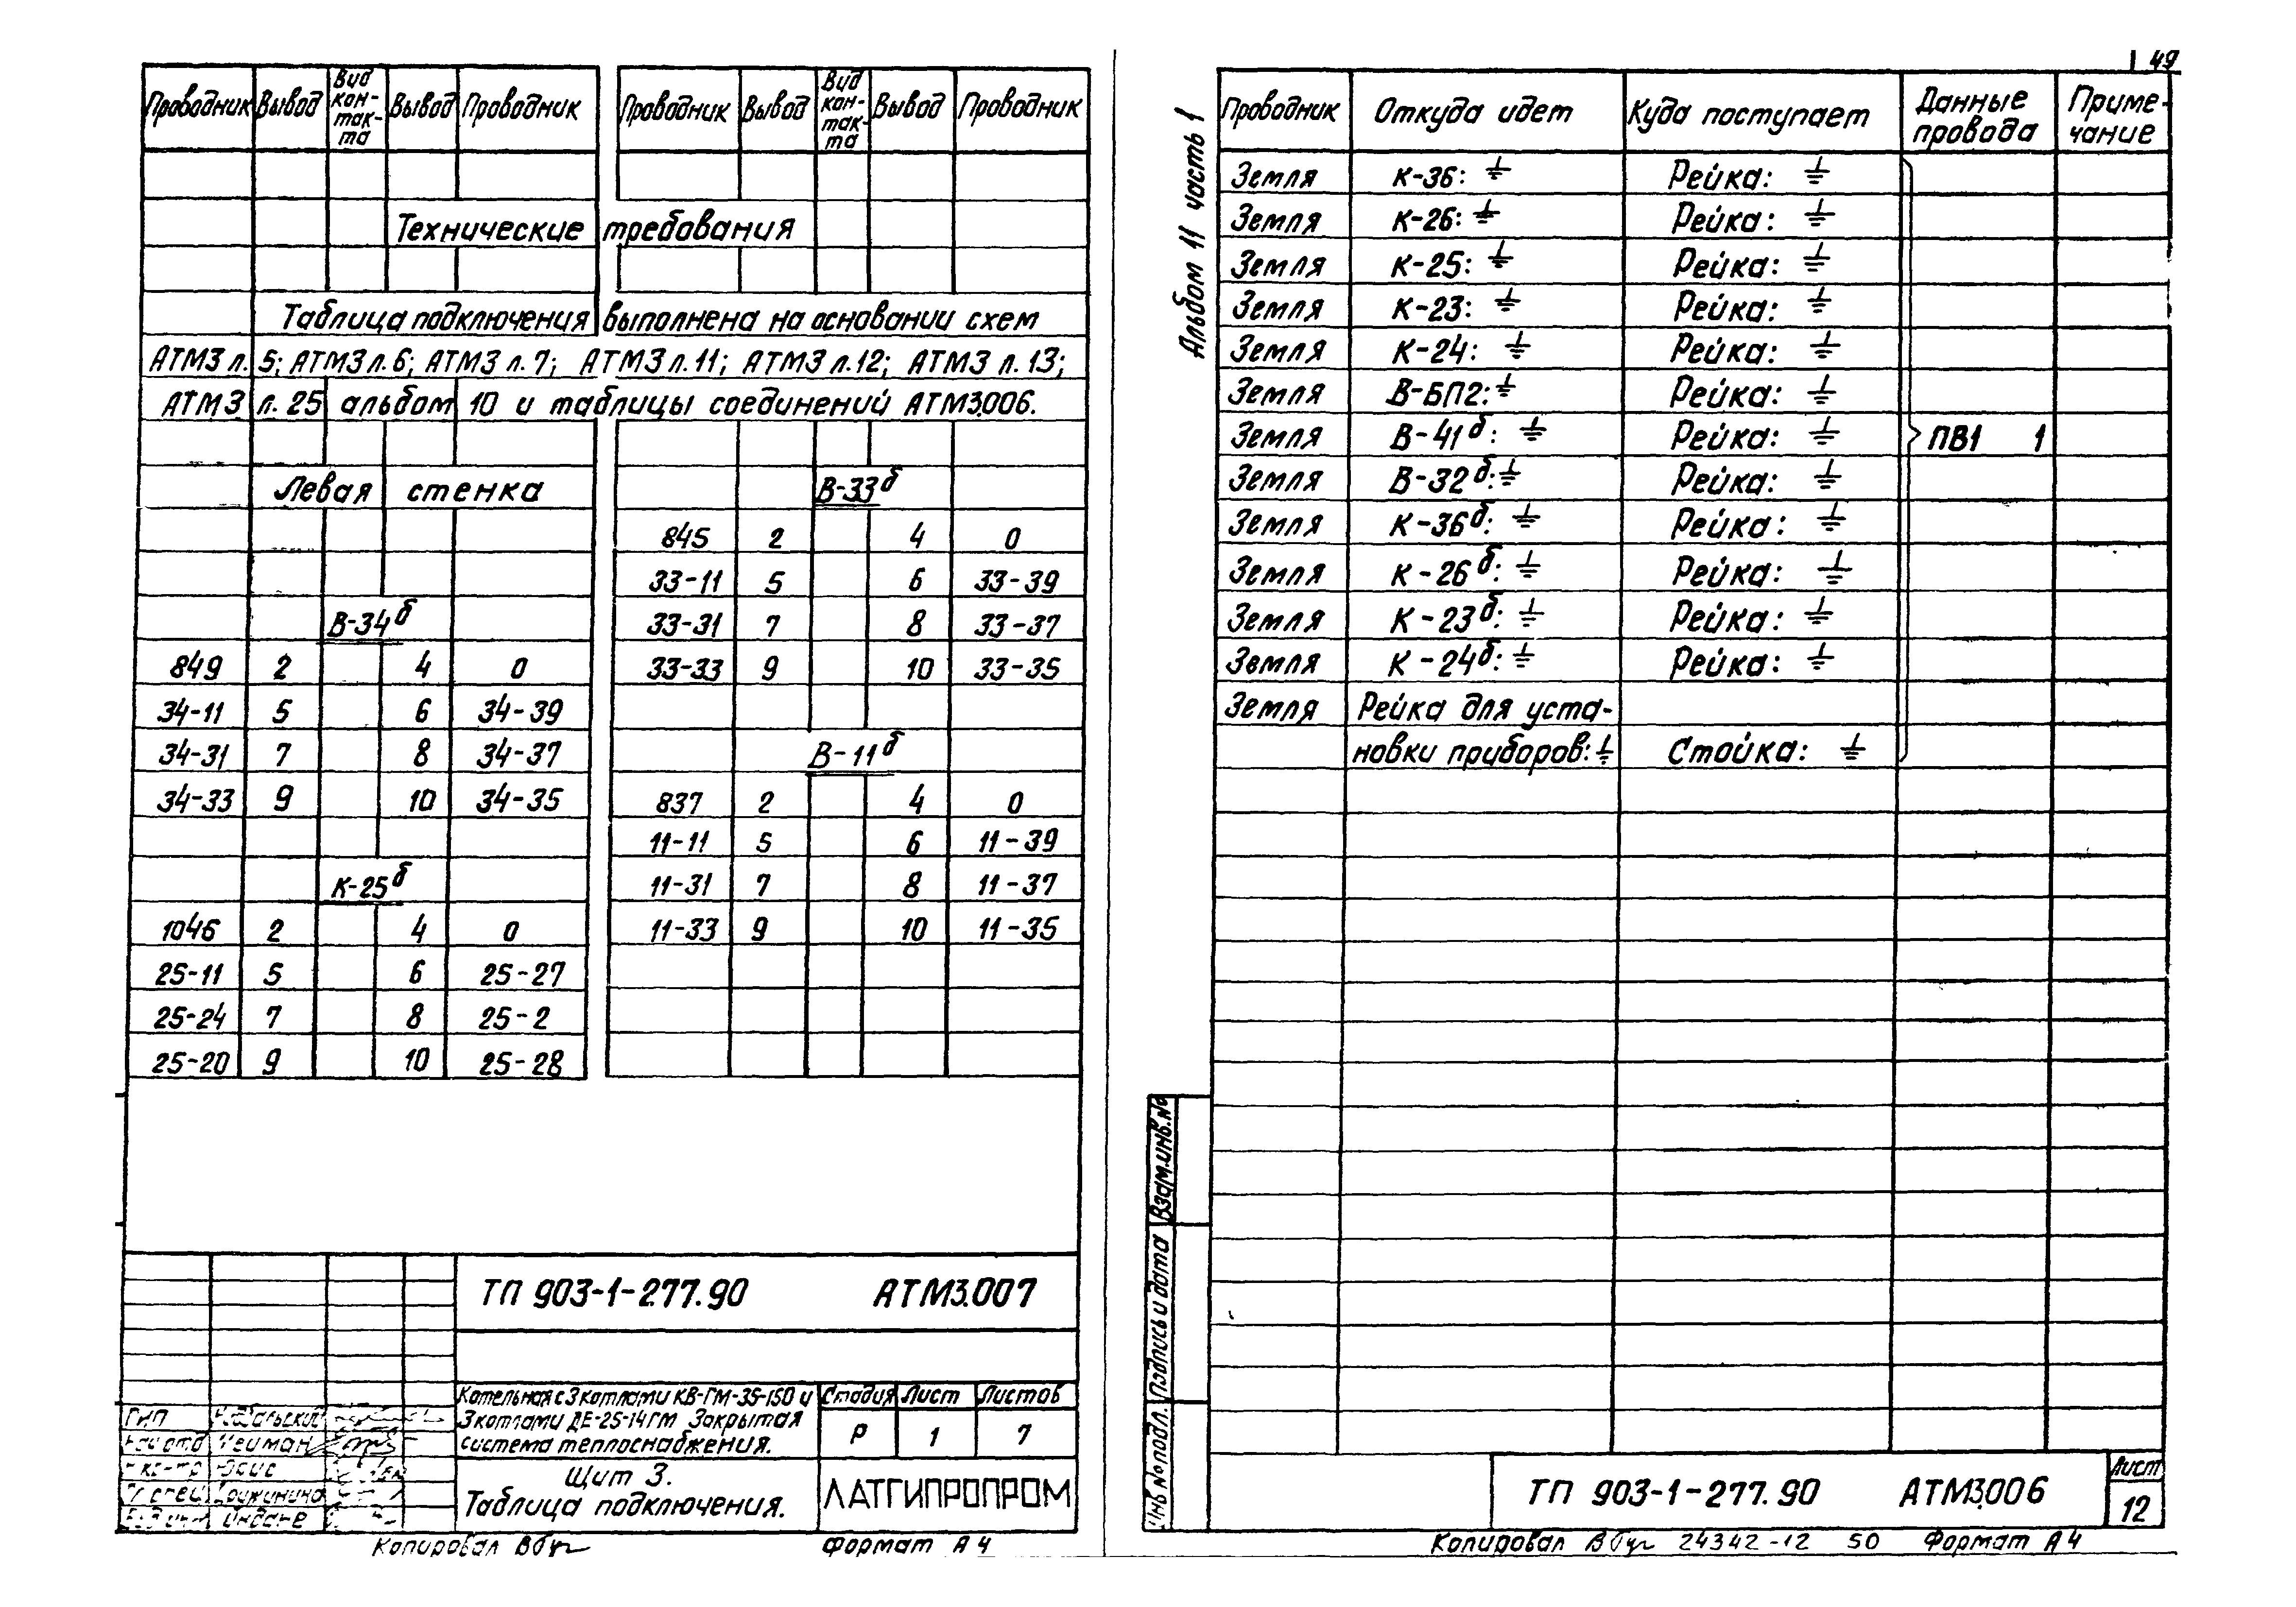 Проводник Вывод Вид кон-так-та Вывод Проводник
Технические требования
Таблица подключения выполнена на основании схем
АТМ3 л. 5; АТМ3 л. 6; АТМ3 л. 7; АТМ3 л. 11; АТМ3 л. 12; АТМ3 л. 13;
АТМ3 л. 25 альбом 10 и таблицы соединений АТМ3.006.
Левая стенка
В-34б
849 2 4 0
34-11 5 6 34-39
34-31 7 8 34-37
34-33 9 10 34-35
К-25б
1046 2 4 0
25-11 5 6 25-27
25-24 7 8 25-2
25-20 9 10 25-28
Проводник Вывод Вид кон-так-та Вывод Проводник
В-33б
845 2 4 0
33-11 5 6 33-39
33-31 7 8 33-37
33-33 9 10 33-35
В-11б
837 2 4 0
11-11 5 6 11-39
11-31 7 8 11-37
11-33 9 10 11-35
ТП 903-1-277.90 АТМ3.007
Котельная с 3 котлами КВ-ГМ-35-150 и
3 котлами ДЕ-25-14ГМ Закрытая
система теплоснабжения.
Стадия Лист Листов
Р 1 7
Щит 3.
Таблица подключения.
ЛАТГИПРОПРОМ
ГИП
Нейман
Копировал
Формат А4
49
Альбом 11 часть 1
Проводник Откуда идет Куда поступает Данные провода Приме-чание
Земля К-36: ⏚ Рейка: ⏚
Земля К-26: ⏚ Рейка: ⏚
Земля К-25: ⏚ Рейка: ⏚
Земля К-23: ⏚ Рейка: ⏚
Земля К-24: ⏚ Рейка: ⏚
Земля В-БП2: ⏚ Рейка: ⏚
Земля В-41б: ⏚ Рейка: ⏚ ПВ1 1
Земля В-32б: ⏚ Рейка: ⏚
Земля К-36б: ⏚ Рейка: ⏚
Земля К-26б: ⏚ Рейка: ⏚
Земля К-23б: ⏚ Рейка: ⏚
Земля К-24б: ⏚ Рейка: ⏚
Земля Рейка для уста-
новки приборов: ⏚ Стойка: ⏚
Взам.инв.№
Подпись и дата
Инв № подл.
ТП 903-1-277.90 АТМ3.006
Лист
12
Копировал 24342-12 50 Формат А4